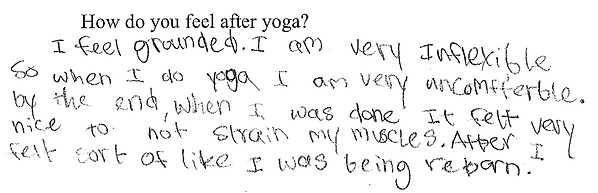 How do you feel after yoga?
I feel grounded. I am very Inflexible
so when I do yoga I am very uncomfterble.
by the end, when I was done It felt very
nice to not strain my muscles. After I
felt sort of like I was being reborn.